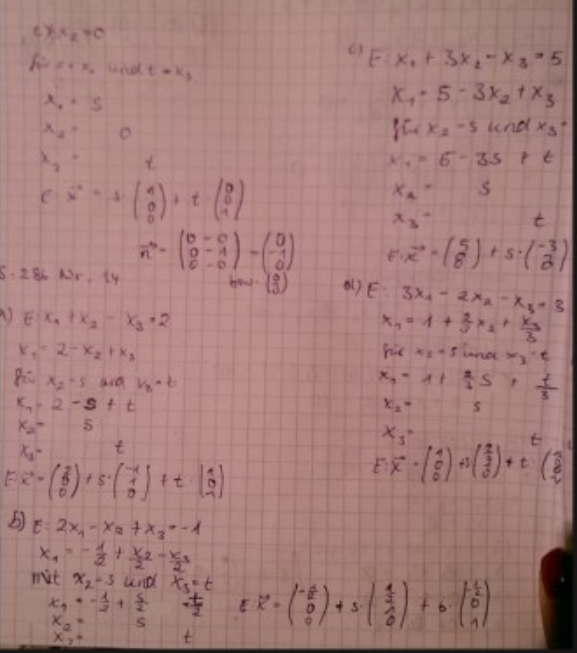 x₂=0
für s=x₁ und t=x₃
x₁ = s
x₂ = 0
x₃ = t
E: x⃗ = s·(1 0 0) + t·(0 0 1)
n⃗ = (0-0 0-1 0-0) = (0 -1 0)
bzw. (0 1 0)
S. 286 Nr. 14
a) E: x₁ + x₂ - x₃ = 2
x₁ = 2 - x₂ + x₃
für x₂=s und x₃=t
x₁ = 2 - s + t
x₂ = s
x₃ = t
E: x⃗ = (2 0 0) + s·(-1 1 0) + t·(1 0 1)
b) E: 2x₁ - x₂ + x₃ = -1
x₁ = -1/2 + x₂/2 - x₃/2
mit x₂=s und x₃=t
x₁ = -1/2 + s/2 - t/2
x₂ = s
x₃ = t
E: x⃗ = (-1/2 0 0) + s·
c) E: x₁ + 3x₂ - x₃ = 5
x₁ = 5 - 3x₂ + x₃
für x₂=s und x₃=
x₁ = 5 - 3s + t
x₂ = s
x₃ = t
E: x⃗ = + s·
d) E: 3x₁ - 2x₂ - x₃ = 3
x₁ = 1 + 2/3 x₂ + x₃/3
für x₂=s und x₃=t
x₁ = 1 + 2/3 s + t/3
x₂ = s
x₃ = t
E: x⃗ = (1 0 0) + s + t·